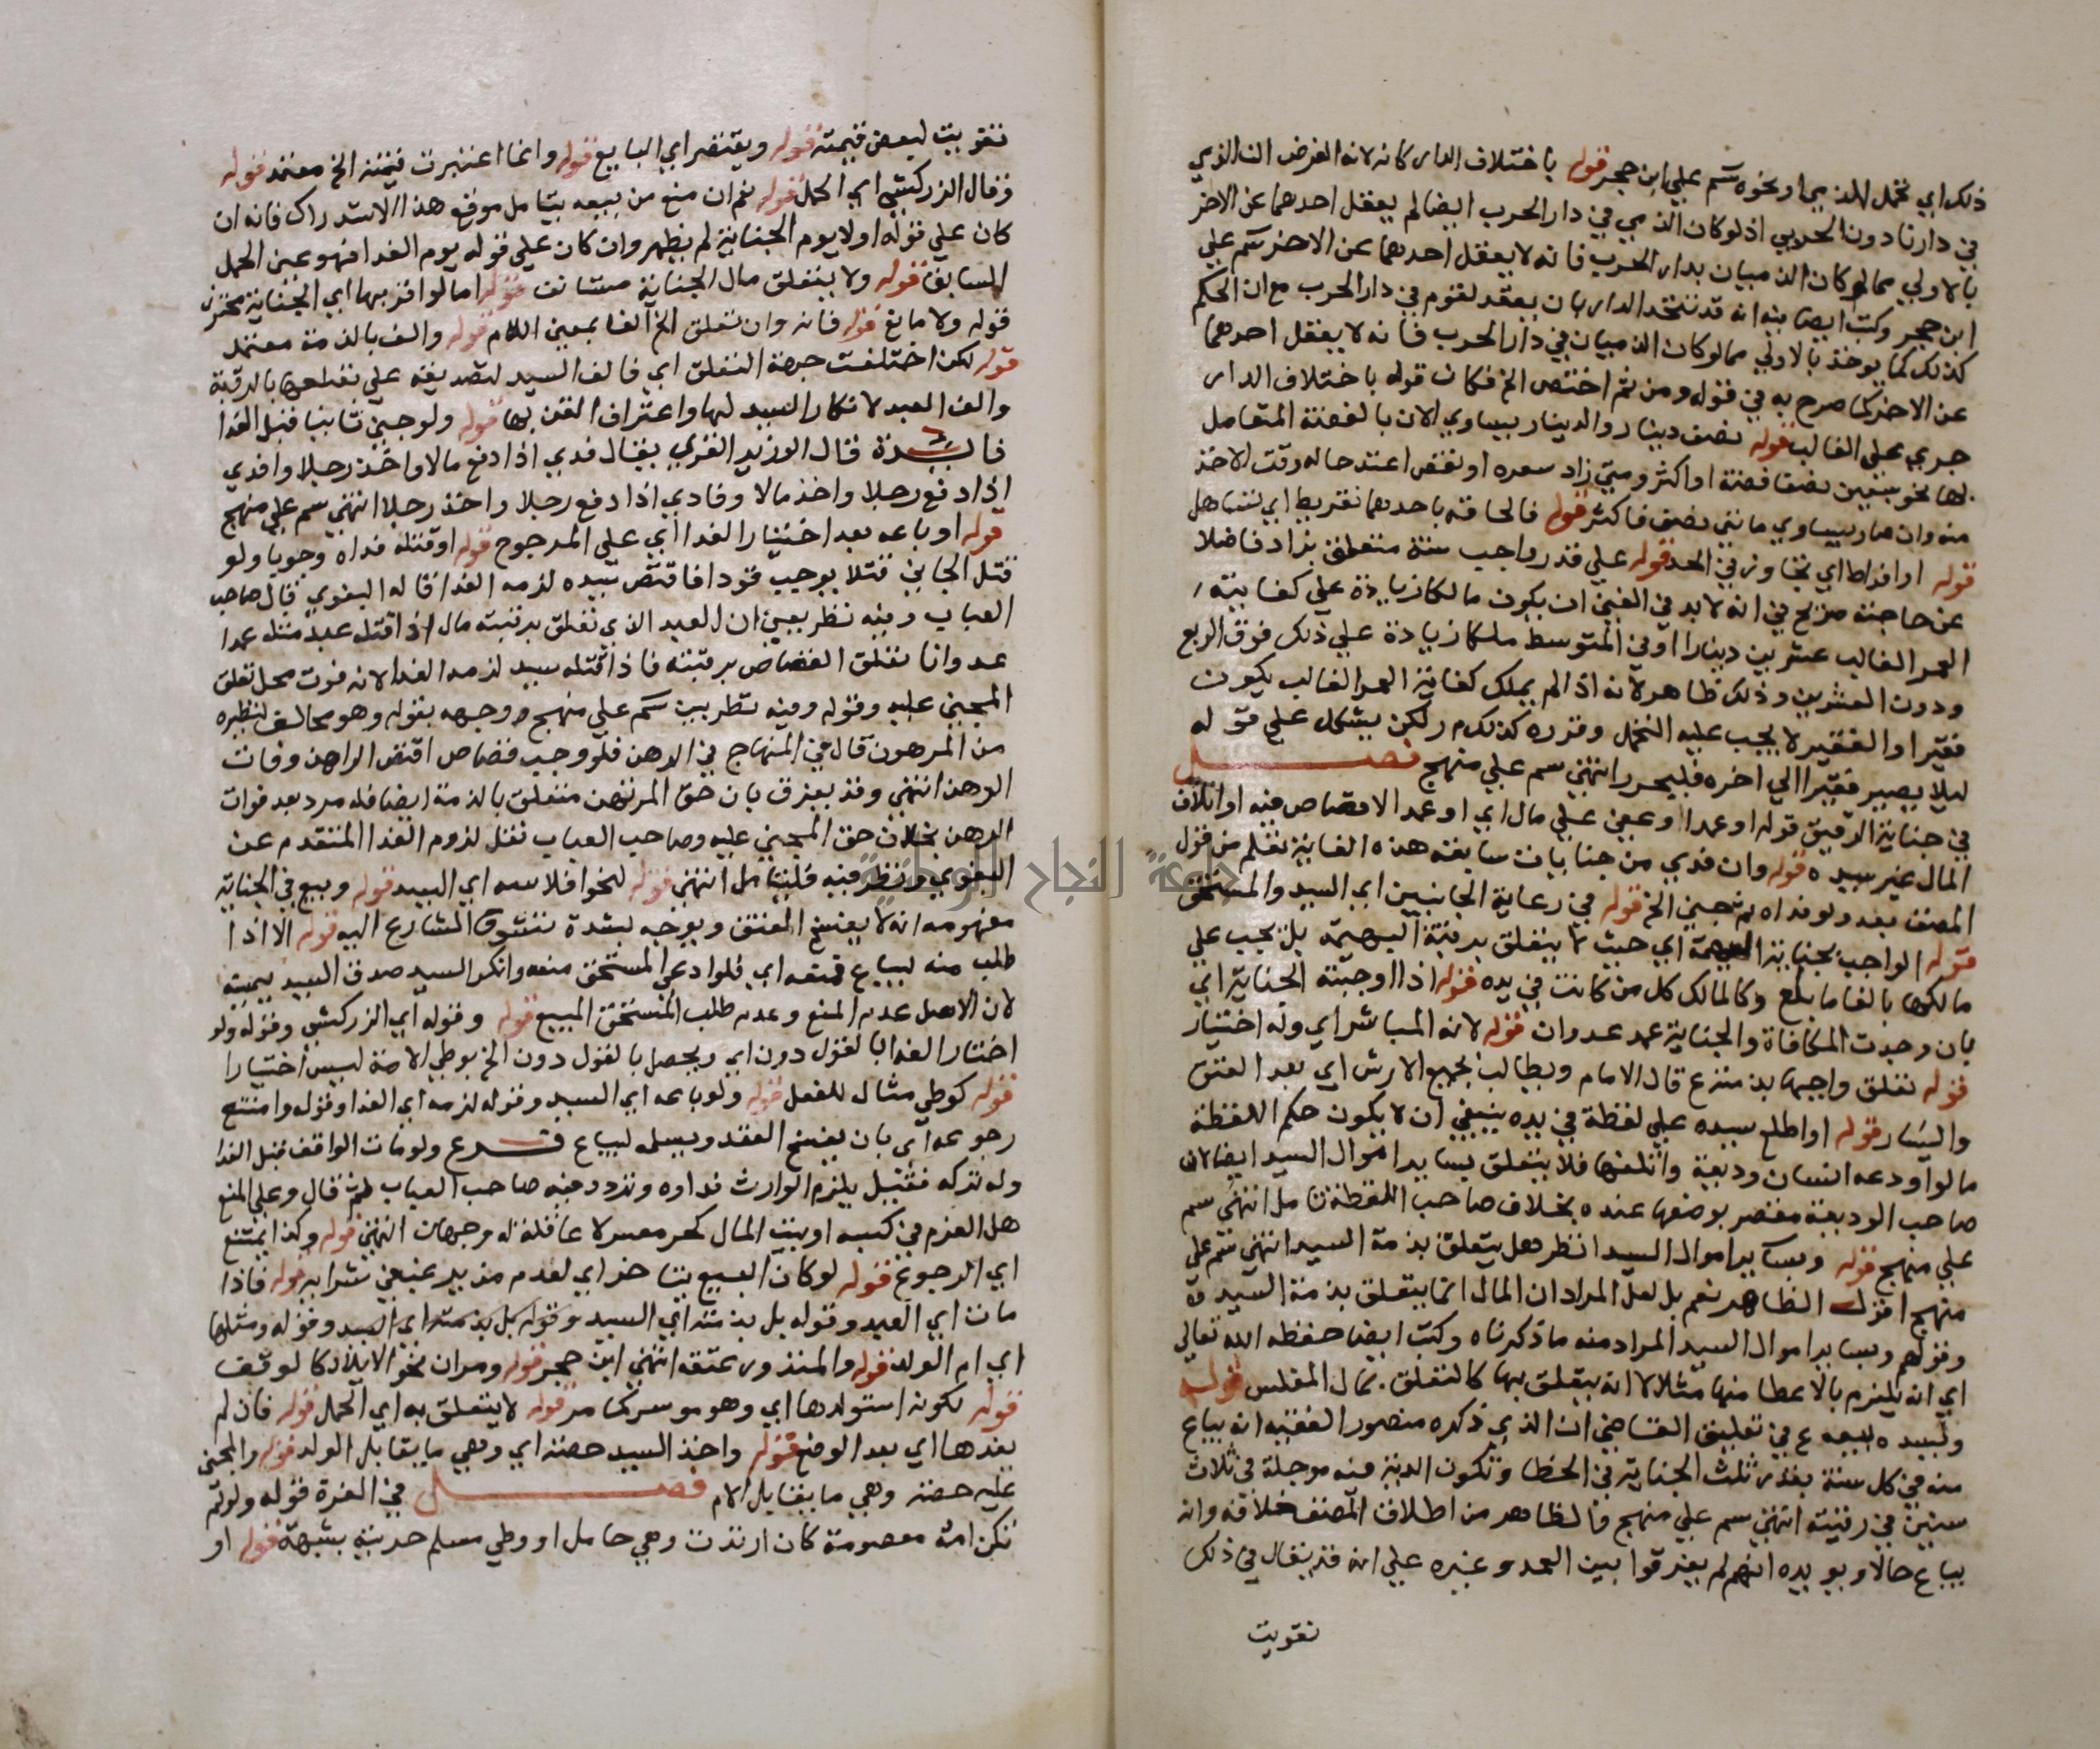 ذلك اي تحمل الذمي او نحوه سم علي ابن حجر قوله باختلاف الدار كانه لانه الغرض اذ الذمي
في دارنا دون الحربي اذ لو كان الذمي في دار الحرب ايضا لم يعقل احدهما عن الاخر
بالاولي مما لو كان الذميان بدار الحرب فانه لا يعقل احدهما عن الاخر سم علي
ابن حجر وكتب ايضا بنه انه قد تتحد الدار بان يعقد لقوم في دار الحرب مع ان الحكم
كذلك كما يوخذ بالاولي مما لو كان الذميان في دار الحرب فانه لا يعقل احدهما
عن الاخر كما صرح به في قوله ومن ثم اختص الخ فكان قوله باختلاف الدار
جري علي الغالب قوله نصف دينار والدينار يساوي الان بالفضة المتعامل
بها نحو سبعين نصفا فضة او اكثر ومتي زاد سعره او نقص اعتبر حاله وقت الاخذ
منه وان صار يساوي مائتي نصف فاكثر قوله فالحاقه باحدهما تفريط اي تساهل
قوله او افراط اي تجاوز في الحد قوله علي قدر واجب سنة متعلق بزاد فاضلا
عن حاجته صريح في انه لا بد في الغني ان يكون مالكا زيادة علي كفاية
العمر الغالب عشرين دينارا او في المتوسط ملكا زيادة علي ذلك فوق الربع
ودون العشرين وذلك ظاهر لانه اذا لم يملك كفاية العمر الغالب يكون
فقيرا والفقير لا يجب عليه التحمل وقرره كذلك م ر لكن يشكل علي قوله
ليلا يصير فقيرا الي اخره فليحرر انتهي سم علي منهج فصل
في جناية الرقيق قوله او عمدا وعفي علي مال اي او عمدا لا قصاص فيه او اتلاف
المال غير سيده قوله وان فدي من جنايات سابقه هذه الغاية تعلم من قول
المصنف بعد ولو فداه ثم جني الخ قوله في رعاية الجانبين اي السيد والمستحق
قوله الواجب بجناية البهيمة اي حيث لا يتعلق برقبة البهيمة بل يجب علي
مالكها بالغا ما بلغ وكالمالك كل من كانت في يده قوله اذا اوجبته الجناية اي
بان وجدت المكافاة والجناية عمد عدوان قوله لانه المباشر اي وله اختيار
قوله تعلق واجبها بمتنزع قال الامام ويطالب بجميع الارش اي بعد العتق
واليسار قوله او اطلع سيده علي لقطة في يده ينبغي ان لا يكون حكم اللقطة
ما لو اودعه انسان وديعة واتلفها فلا يتعلق بساير اموال السيد ايضا لان
صاحب الوديعة مقصر بوضعها عنده بخلاف صاحب اللقطة تامل انتهي سم
علي منهج قوله وبساير اموال السيد انظر هل يتعلق بذمة السيد انتهي سم علي
منهج اقول الظاهر نعم بل لعل المراد ان المال انما يتعلق بذمة السيد
وقولهم وبساير اموال السيد المراد منه ما ذكرناه وكتب ايضا حفظه الله تعالي
اي انه يلزم بالاعطا منها مثلا لا انه يتعلق بها كالتعلق بمال المفلس قوله
ولسيده بيعه ع في تعليق القاضي ان الذي ذكره منصور الفقيه انه يباع
منه في كل سنة بقدر ثلث الجناية في الخطا وتكون الدية منه موجلة في ثلاث
سنين في رقبته انتهي سم علي منهج فالظاهر من اطلاق المصنف خلافه وانه
يباع حالا ويويده انهم لم يفرقوا بين العمد وغيره علي انه قد يقال في ذلك
تفويت
تفويت لبعض قيمته قوله ويقتصر اي البايع قوله وانما اعتبرت قيمته الخ معتمد قوله
وقال الزركشي اي الحمل قوله نعم ان منع من بيعه يتامل موقع هذا الاستدراك فانه ان
كان علي قوله اولا يوم الجناية لم يظهر وان كان علي قوله يوم الفدا فهو عين الحمل
السابق قوله ولا يتعلق مال الجناية مستانف قوله اما لو اقر بها اي الجناية محترز
قوله ولا مانع قوله فانه وان تعلق الخ الفا بمعني اللام قوله والف بالذمة معتمد
قوله لكن اختلفت جهة التعلق اي فالف السيد لتصديقه علي تعلقها بالرقبة
والف العبد لانكار السيد لها واعتراف القن بها قوله ولو جني ثانيا قبل الفدا
فايدة قال الوزير المغربي يقال فدي اذا دفع مالا واخذ رجلا وافدي
اذا دفع رجلا واخذ مالا وفادي اذا دفع رجلا واخذ رجلا انتهي سم علي منهج
قوله او باعه بعد اختيار الفدا اي علي المرجوح قوله او قتله فداه وجوبا ولو
قتل الجاني قتلا يوجب قودا فاقتص سيده لزمه الفدا قاله البغوي قال صاحب
العباب وفيه نظر يعني ان العبد الذي تعلق برقبته مال اذا قتله عبد مثله عمدا
عدوانا تعلق القصاص برقبته فاذا قتله سيد لزمه الفدا لانه فوت محل تعلق
المجني عليه وقوله وفيه نظر بين سم علي منهج ووجهه بقوله وهو مخالف لنظيره
من المرهون قال في المنهاج في الرهن فلو وجب قصاص اقتص الراهن وفات
الرهن انتهي وقد يفرق بان حق المرتهن متعلق بالذمة ايضا فله مرد بعد فوات
الرهن بخلاف حق المجني عليه وصاحب العباب نقل لزوم الفدا المتقدم عن
البغوي ونظر فيه فليتامل انتهي قوله لنحو افلاسه اي السيد قوله وبيع في الجناية
مفهومه انه لا يفسخ العتق ويوجه بشدة تشوف الشارع اليه قوله الا اذا
طلب منه ليباع فمنعه اي فلو ادعي المستحق منعه وانكر السيد صدق السيد بيمينه
لان الاصل عدم المنع وعدم طلب المستحق البيع قوله وقوله اي الزركشي وقوله ولو
اختار الفدا بالقول دون اي ويحصل بالقول دون الخ بوطي الامة ليس اختيارا
قوله كوطي مثال للفعل قوله ولو باعه اي السيد وقوله لزمه اي الفدا وقوله وامتنع
رجوعه اي بان يفسخ العقد ويسلمه ليباع فرع ولو مات الواقف قبل الفدا
وله تركه فقيل يلزم الوارث فداوه وتردد فيه صاحب العباب ثم قال وعلي المنع
هل الغرم في كسبه او بيت المال كحر معسر لا عاقلة له وجهان انتهي قوله وكذا يمتنع
اي الرجوع قوله لو كان البيع يتاخر اي لعدم من يرغب في شرايه قوله فاذا
مات اي العبد وقوله بل بذمته اي السيد وقوله بل بذمته اي السيد وقوله ومثلها
اي ام الولد قوله والمنذور عتقه انتهي ابن حجر قوله ومر ان نحو الايلاد كالوقف
قوله بكونه استولدها اي وهو موسر كما مر قوله لا يتعلق به اي الحمل قوله فان لم
يفدها اي بعد الوضع قوله واخذ السيد حصته اي وهي ما يقابل الولد قوله والمجني
عليه حصته وهي ما يقابل الام فصل في الغرة قوله ولو لم
تكن امه معصومة كان ارتدت وهي حامل او وطي مسلم حربية بشبهة قوله او